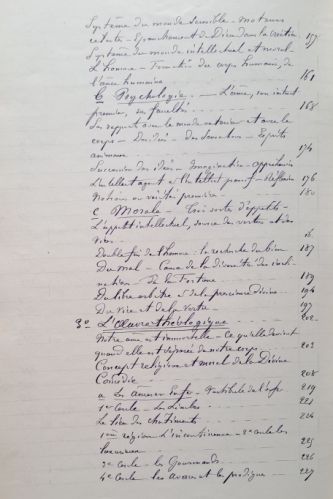 Système du monde sensible - Moteurs
célestes - Epanchement de Dieu dans la création 157
Système du monde intellectuel et moral
L'homme - Formation du corps humain, de
l'âme humaine 161
b Psychologie. - L'âme, son intel
première, ses facultés 168
Ses rapports avec le monde extérieur et avec le
corps - Des Idées - Des Sensations - Esprits
animaux 174
Succession des idées - Imagination - Appréhension
L'intellect agent et l'intellect passif - Réflexion 176
Notions ou vérités premières 180
c Morale - Trois sortes d'appétits -
L'appétit intellectuel, source des vertus et des
vices
Double fin de l'homme : la recherche du bien 187
Du mal - Cause de la diversité des incli-
nations - De la Fortune 189
Du libre arbitre et de la prescience divine 194
Du vice et de la vertu 197
3° L'Œuvre théologique 202
Notre âme est immortelle - Ce qu'elle devient
quand elle est séparée de notre corps 203
Concept religieux et moral de la Divine
Comédie 208
a Les Enfer - Vestibule de l'enfer 219
1er cercle - Les Limbes 221
Le lieu des châtiments 224
1ère région L'incontinence - 2e cercle les
luxurieux 225
3e cercle - les Gourmands 226
4e cercle les avares et les prodigues 227